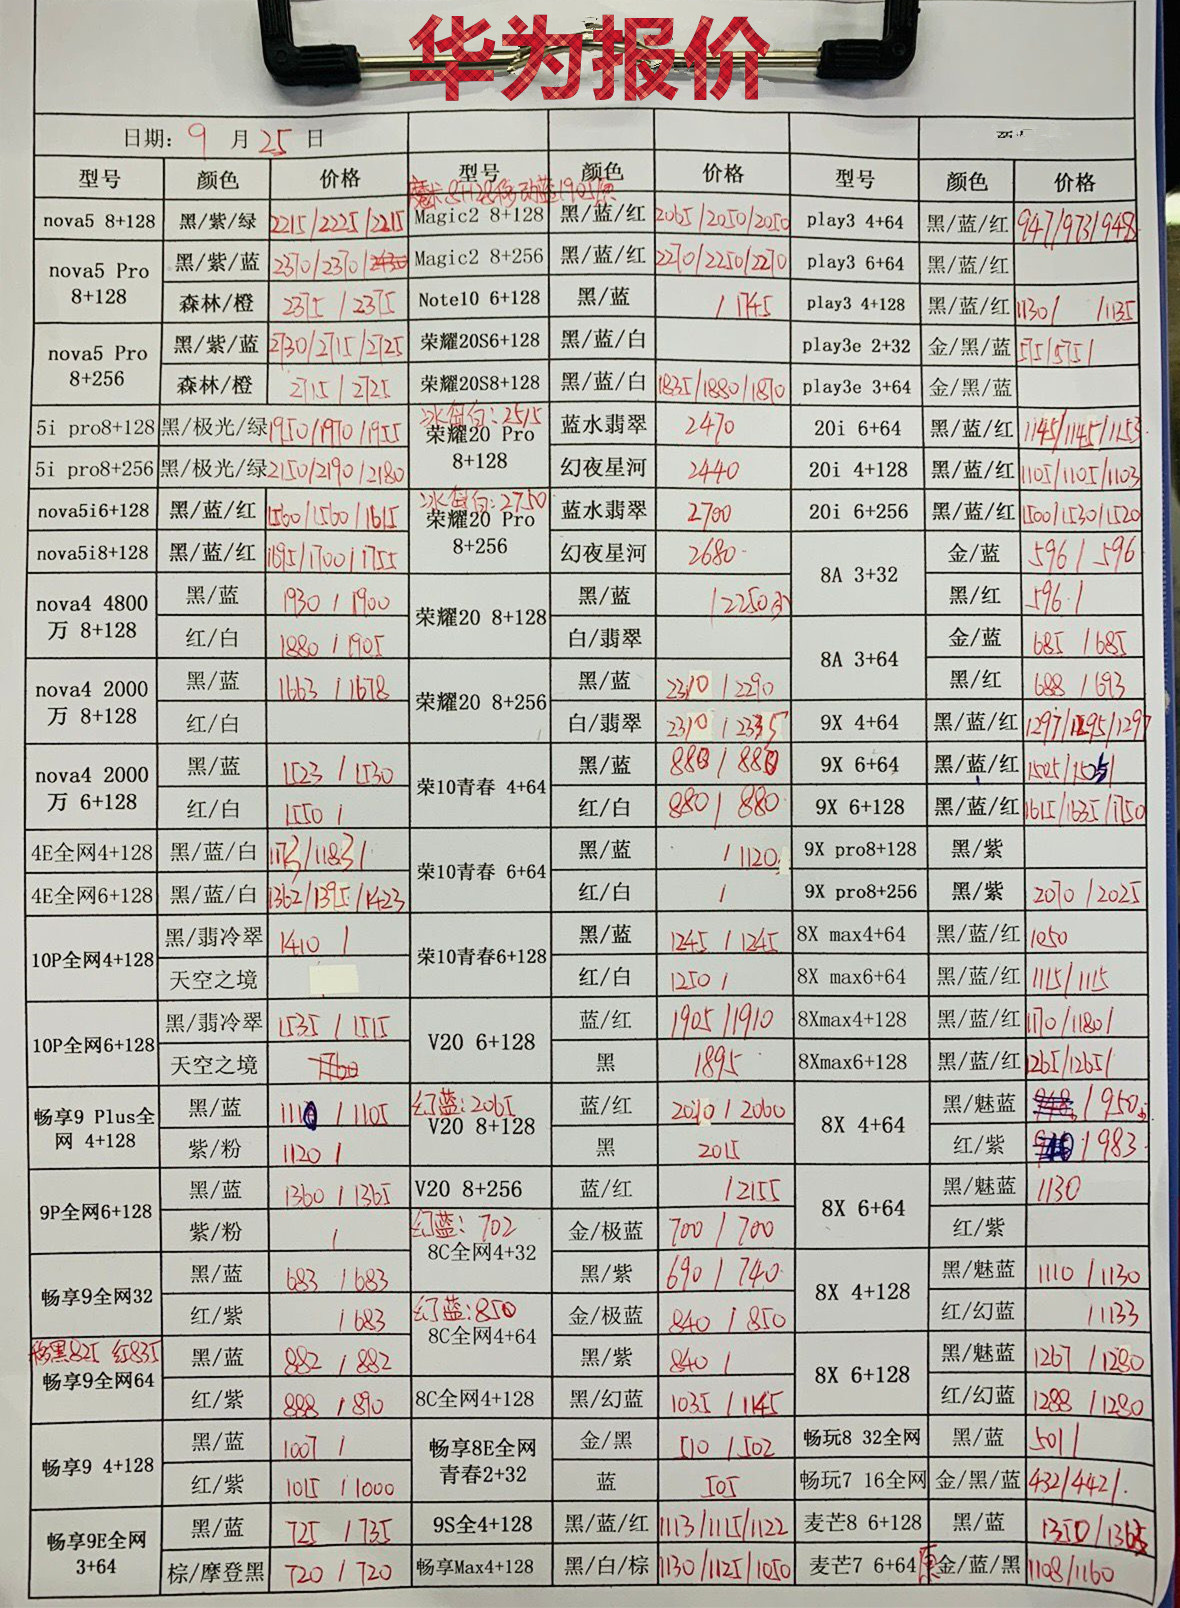 华为报价
日期: 9 月 25 日
型号 颜色 价格 型号 颜色 价格 型号 颜色 价格
魔术8+128移动蓝1905原
nova5 8+128 黑/紫/绿 2215/2225/2215 Magic2 8+128 黑/蓝/红 2065/2050/2050 play3 4+64 黑/蓝/红 947/973/948
nova5 Pro 8+128 黑/紫/蓝 2370/2370/ Magic2 8+256 黑/蓝/红 2270/2250/2270 play3 6+64 黑/蓝/红
森林/橙 2375 / 2375 Note10 6+128 黑/蓝 / 1745 play3 4+128 黑/蓝/红 1130/ /1135
nova5 Pro 8+256 黑/紫/蓝 2730/2715/2725 荣耀20S6+128 黑/蓝/白 play3e 2+32 金/黑/蓝 575/575/
森林/橙 2715 / 2725 荣耀20S8+128 黑/蓝/白 1835/1880/1870 play3e 3+64 金/黑/蓝
冰岛白: 2515
5i pro8+128 黑/极光/绿 1950/1970/1955 荣耀20 Pro 8+128 蓝水翡翠 2470 20i 6+64 黑/蓝/红 1145/1145/1153
5i pro8+256 黑/极光/绿 2150/2190/2180 幻夜星河 2440 20i 4+128 黑/蓝/红 1105/1105/1103
冰岛白: 2750
nova5i6+128 黑/蓝/红 1560/1560/1615 荣耀20 Pro 8+256 蓝水翡翠 2700 20i 6+256 黑/蓝/红 1500/1530/1520
nova5i8+128 黑/蓝/红 1695/1700/1755 幻夜星河 2680 8A 3+32 金/蓝 596 / 596
nova4 4800万 8+128 黑/蓝 1930 / 1900 荣耀20 8+128 黑/蓝 / 2250 黑/红 596 /
红/白 1880 / 1905 白/翡翠 8A 3+64 金/蓝 685 / 685
nova4 2000万 8+128 黑/蓝 1663 / 1678 荣耀20 8+256 黑/蓝 2310 / 2290 黑/红 688 / 693
红/白 白/翡翠 2310 / 2335 9X 4+64 黑/蓝/红 1297/1295/1297
nova4 2000万 6+128 黑/蓝 1523 / 1530 荣10青春 4+64 黑/蓝 880 / 880 9X 6+64 黑/蓝/红 1505/1505/
红/白 1550 / 红/白 880 / 880 9X 6+128 黑/蓝/红 1615/1635/1750
4E全网4+128 黑/蓝/白 1173/1183/ 荣10青春 6+64 黑/蓝 / 1120 9X pro8+128 黑/紫
4E全网6+128 黑/蓝/白 1362/1395/1423 红/白 / 9X pro8+256 黑/紫 2070 / 2025
10P全网4+128 黑/翡冷翠 1410 / 荣10青春6+128 黑/蓝 1245 / 1245 8X max4+64 黑/蓝/红 1050
天空之境 红/白 1250 / 8X max6+64 黑/蓝/红 1115/1115
10P全网6+128 黑/翡冷翠 1535 / 1515 V20 6+128 蓝/红 1905 / 1910 8Xmax4+128 黑/蓝/红 1170/1180/
天空之境 1760 黑 1895 8Xmax6+128 黑/蓝/红 1265/1265/
幻蓝: 2065
畅享9 Plus全网 4+128 黑/蓝 1110 / 1105 V20 8+128 蓝/红 2010 / 2060 8X 4+64 黑/魅蓝 / 950
紫/粉 1120 / 黑 2015 红/紫 / 983
9P全网6+128 黑/蓝 1360 / 1365 V20 8+256 蓝/红 / 2155 8X 6+64 黑/魅蓝 1130
幻蓝: 702
紫/粉 / 8C全网4+32 金/极蓝 700 / 700 红/紫
畅享9全网32 黑/蓝 683 / 683 黑/紫 690 / 740 8X 4+128 黑/魅蓝 1110 / 1130
幻蓝: 850
红/紫 / 683 8C全网4+64 金/极蓝 840 / 850 红/幻蓝 / 1133
移黑825 红835
畅享9全网64 黑/蓝 882 / 882 黑/紫 840 / 8X 6+128 黑/魅蓝 1267 / 1280
红/紫 888 / 890 8C全网4+128 黑/幻蓝 1035 / 1145 红/幻蓝 1288 / 1280
畅享9 4+128 黑/蓝 1007 / 畅享8E全网 青春2+32 金/黑 510 / 502 畅玩8 32全网 黑/蓝 501 /
红/紫 1015 / 1000 蓝 505 畅玩7 16全网 金/黑/蓝 432/442/
畅享9E全网 3+64 黑/蓝 725 / 735 9S全4+128 黑/蓝/红 1113/1115/1122 麦芒8 6+128 黑/蓝 1350 / 1365
棕/摩登黑 720 / 720 畅享Max4+128 黑/白/棕 1130/1125/1050 麦芒7 6+64 原 金/蓝/黑 1108/1160